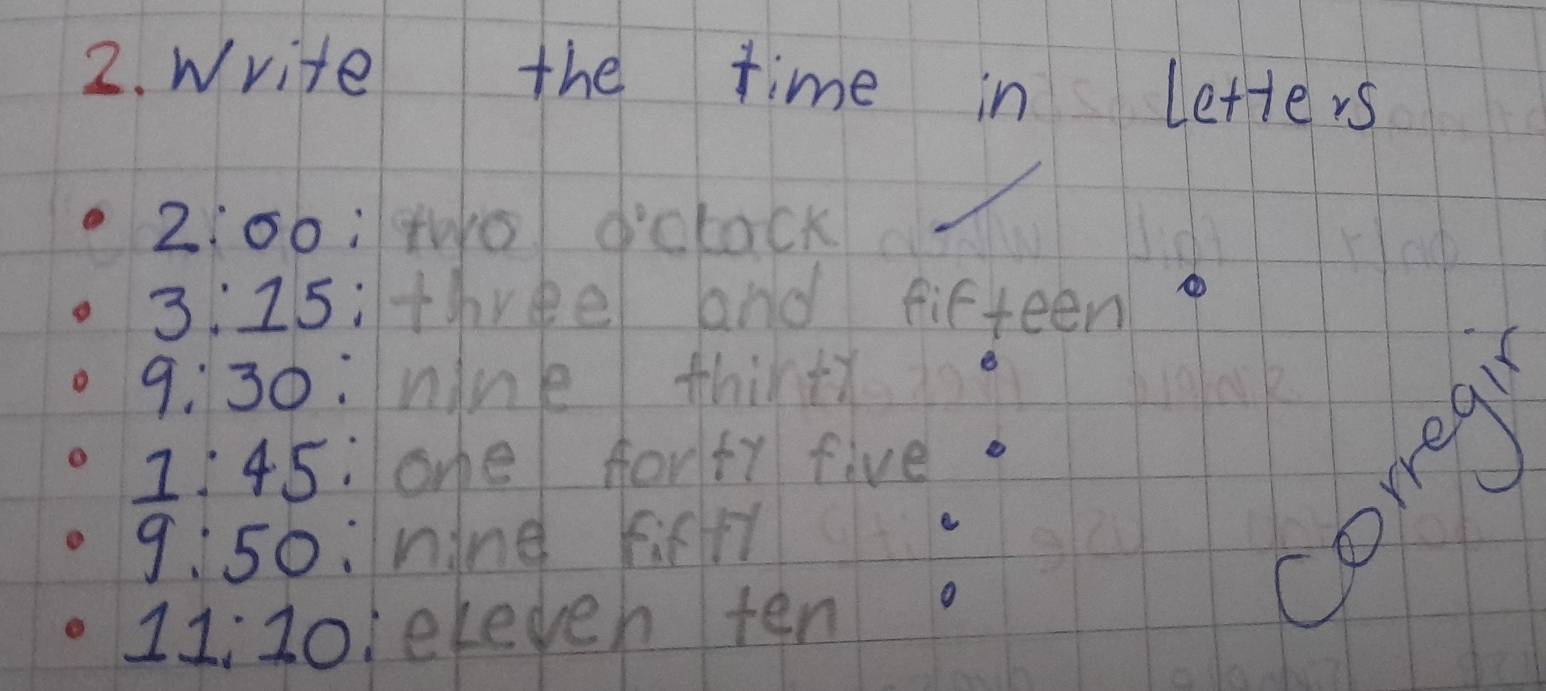 2. Write the time in letters
• 2:00: two o'clock
• 3:15: three and fifteen
• 9:30: nine thirty
• 1:45: one forty five
• 9:50: nine fifty
• 11:10: eleven ten
Corregir